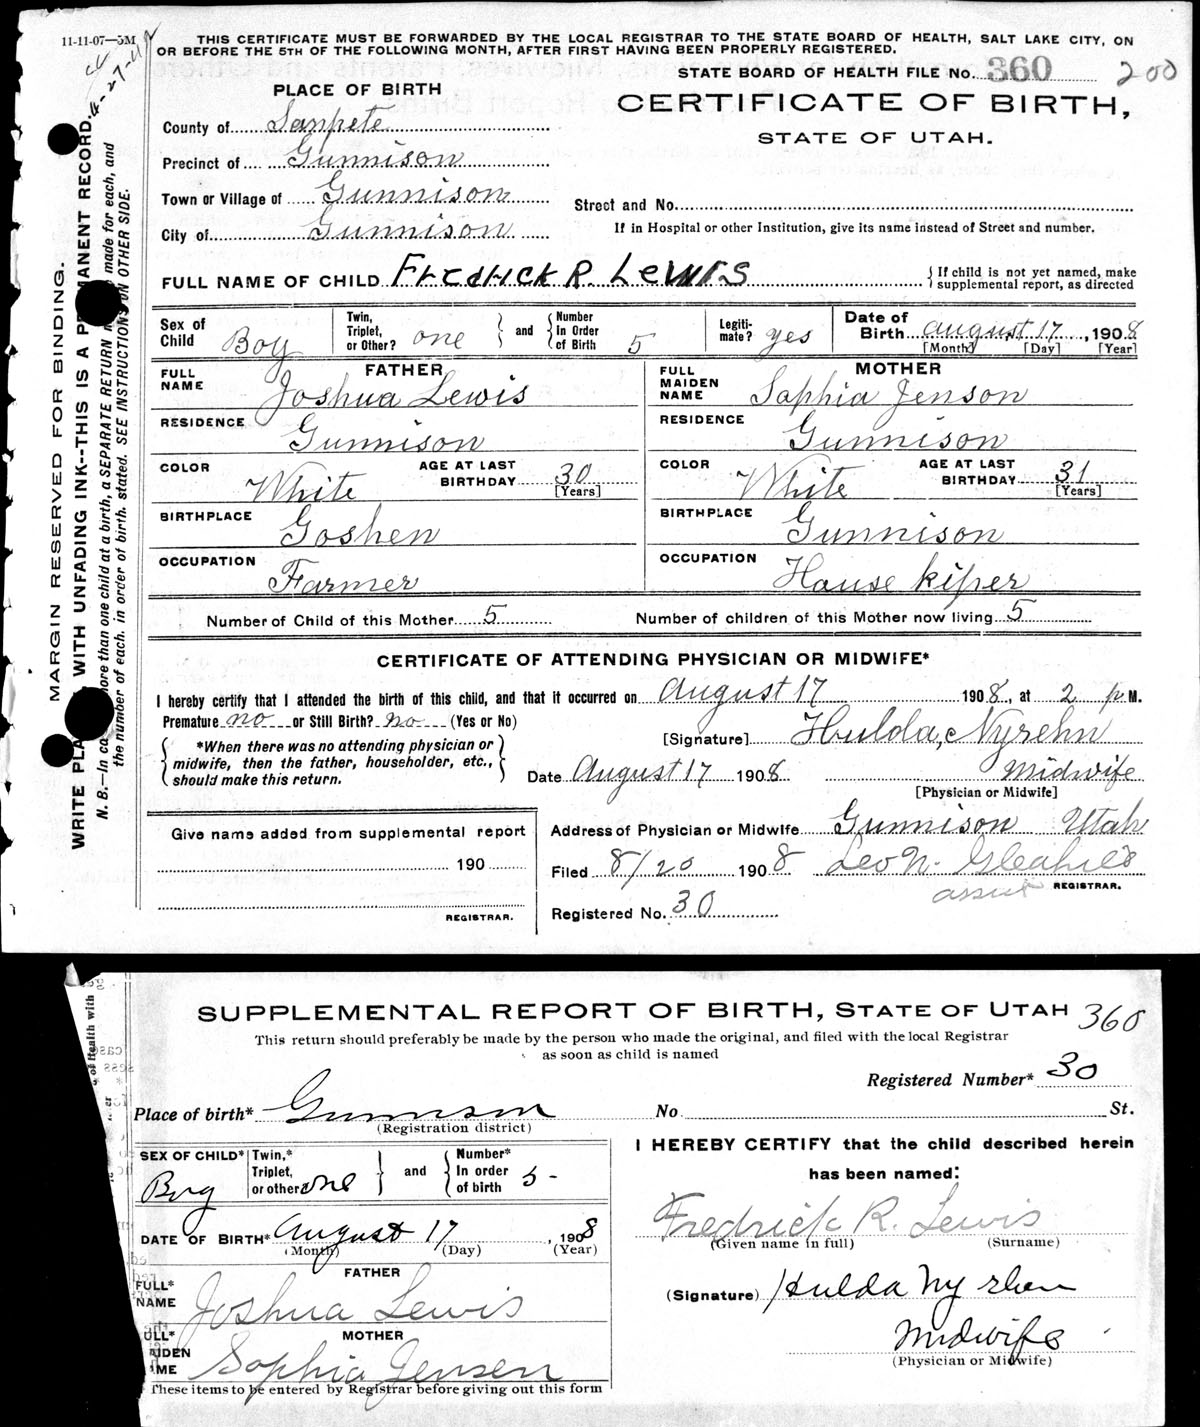 11-11-07—5M
THIS CERTIFICATE MUST BE FORWARDED BY THE LOCAL REGISTRAR TO THE STATE BOARD OF HEALTH, SALT LAKE CITY, ON
OR BEFORE THE 5TH OF THE FOLLOWING MONTH, AFTER FIRST HAVING BEEN PROPERLY REGISTERED.
STATE BOARD OF HEALTH FILE No. 360 200
CERTIFICATE OF BIRTH,
STATE OF UTAH.
PLACE OF BIRTH
County of Sanpete
Precinct of Gunnison
Town or Village of Gunnison
City of Gunnison
Street and No.
If in Hospital or other Institution, give its name instead of Street and number.
FULL NAME OF CHILD Fredrick R. Lewis
If child is not yet named, make
supplemental report, as directed
Sex of Child Boy
Twin, Triplet, or Other? one and Number In Order of Birth 5
Legiti- mate? yes
Date of Birth August 17, 1908
[Month] [Day] [Year]
FATHER
FULL NAME Joshua Lewis
RESIDENCE Gunnison
COLOR White AGE AT LAST BIRTHDAY 30 [Years]
BIRTHPLACE Goshen
OCCUPATION Farmer
MOTHER
FULL MAIDEN NAME Sophia Jenson
RESIDENCE Gunnison
COLOR White AGE AT LAST BIRTHDAY 31 [Years]
BIRTHPLACE Gunnison
OCCUPATION House kiper
Number of Child of this Mother 5 Number of children of this Mother now living 5
CERTIFICATE OF ATTENDING PHYSICIAN OR MIDWIFE*
I hereby certify that I attended the birth of this child, and that it occurred on August 17 1908, at 2 p M.
Premature no or Still Birth? no (Yes or No)
*When there was no attending physician or
midwife, then the father, householder, etc.,
should make this return.
[Signature] Hulda, Nyrehn
Date August 17 1908 Midwife
[Physician or Midwife]
Give name added from supplemental report
190
REGISTRAR.
Address of Physician or Midwife Gunnison Utah
Filed 8/20 1908 Leo N.
REGISTRAR.
Registered No. 30
MARGIN RESERVED FOR BINDING.
WRITE PLA WITH UNFADING INK--THIS IS A P MANENT RECORD
N. B.—In ca more than one child at a birth, a SEPARATE RETURN m made for each, and
the number of each. in order of birth. stated. SEE INSTRUCTIONS ON OTHER SIDE.
SUPPLEMENTAL REPORT OF BIRTH, STATE OF UTAH 360
This return should preferably be made by the person who made the original, and filed with the local Registrar
as soon as child is named
Registered Number* 30
Place of birth* Gunnison No. St.
(Registration district)
SEX OF CHILD* Boy
Twin,* Triplet, or other one and Number* In order of birth 5-
DATE OF BIRTH* August 17, 1908
(Month) (Day) (Year)
FATHER
FULL* NAME Joshua Lewis
MOTHER
ULL* IDEN ME Sophia Jensen
These items to be entered by Registrar before giving out this form
I HEREBY CERTIFY that the child described herein
has been named:
Fredrick R. Lewis
(Given name in full) (Surname)
(Signature) Hulda Nyrehn
Midwife
(Physician or Midwife)